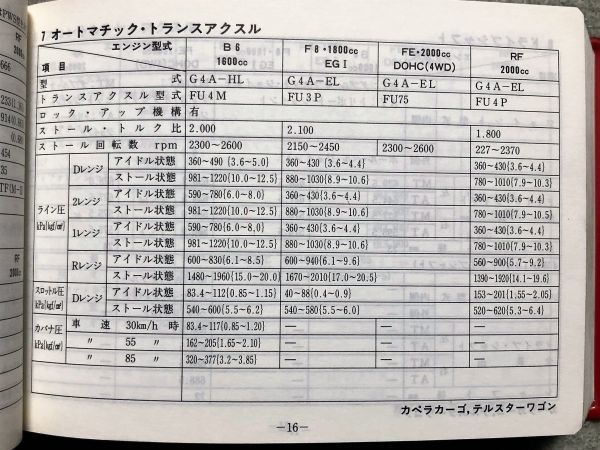 7 オートマチック・トランスアクスル
エンジン型式 B6 1600cc F8・1800cc EGI FE・2000cc DOHC(4WD) RF 2000cc
項目
型式 G4A-HL G4A-EL G4A-EL G4A-EL
トランスアクスル型式 FU4M FU3P FU75 FU4P
ロック・アップ機構 有
ストール・トルク比 2.000 2.100 1.800
ストール回転数 rpm 2300~2600 2150~2450 2300~2600 227~2370
ライン圧 kPa{kgf/㎠}
Dレンジ アイドル状態 360~490 {3.6~5.0} 360~430 {3.6~4.4} 360~430{3.6~4.4}
ストール状態 981~1220{10.0~12.5} 880~1030{8.9~10.6} 780~1010{7.9~10.3}
2レンジ アイドル状態 590~780{6.0~8.0} 360~430{3.6~4.4} 360~430{3.6~4.4}
ストール状態 981~1220{10.0~12.5} 880~1030{8.9~10.6} 780~1010{7.9~10.5}
1レンジ アイドル状態 590~780{6.0~8.0} 360~430{3.6~4.4} 360~430{3.6~4.4}
ストール状態 981~1220{10.0~12.5} 880~1030{8.9~10.6} 780~1010{7.9~10.3}
Rレンジ アイドル状態 600~830{6.1~8.5} 600~940{6.1~9.6} 560~900{5.7~9.2}
ストール状態 1480~1960{15.0~20.0} 1670~2010{17.0~20.5} 1390~1920{14.1~19.6}
スロットル圧 kPa{kgf/㎠}
Dレンジ アイドル状態 83.4~112{0.85~1.15} 40~88{0.4~0.9} 153~201{1.55~2.05}
ストール状態 540~600{5.5~6.2} 540~580{5.5~6.0} 520~620{5.3~6.4}
ガバナ圧 kPa{kgf/㎠}
車速 30km/h 時 83.4~117{0.85~1.20} — — —
〃 55 〃 162~205{1.65~2.10} — — —
〃 85 〃 320~377{3.2~3.85} — — —
カペラカーゴ,テルスターワゴン
—16—